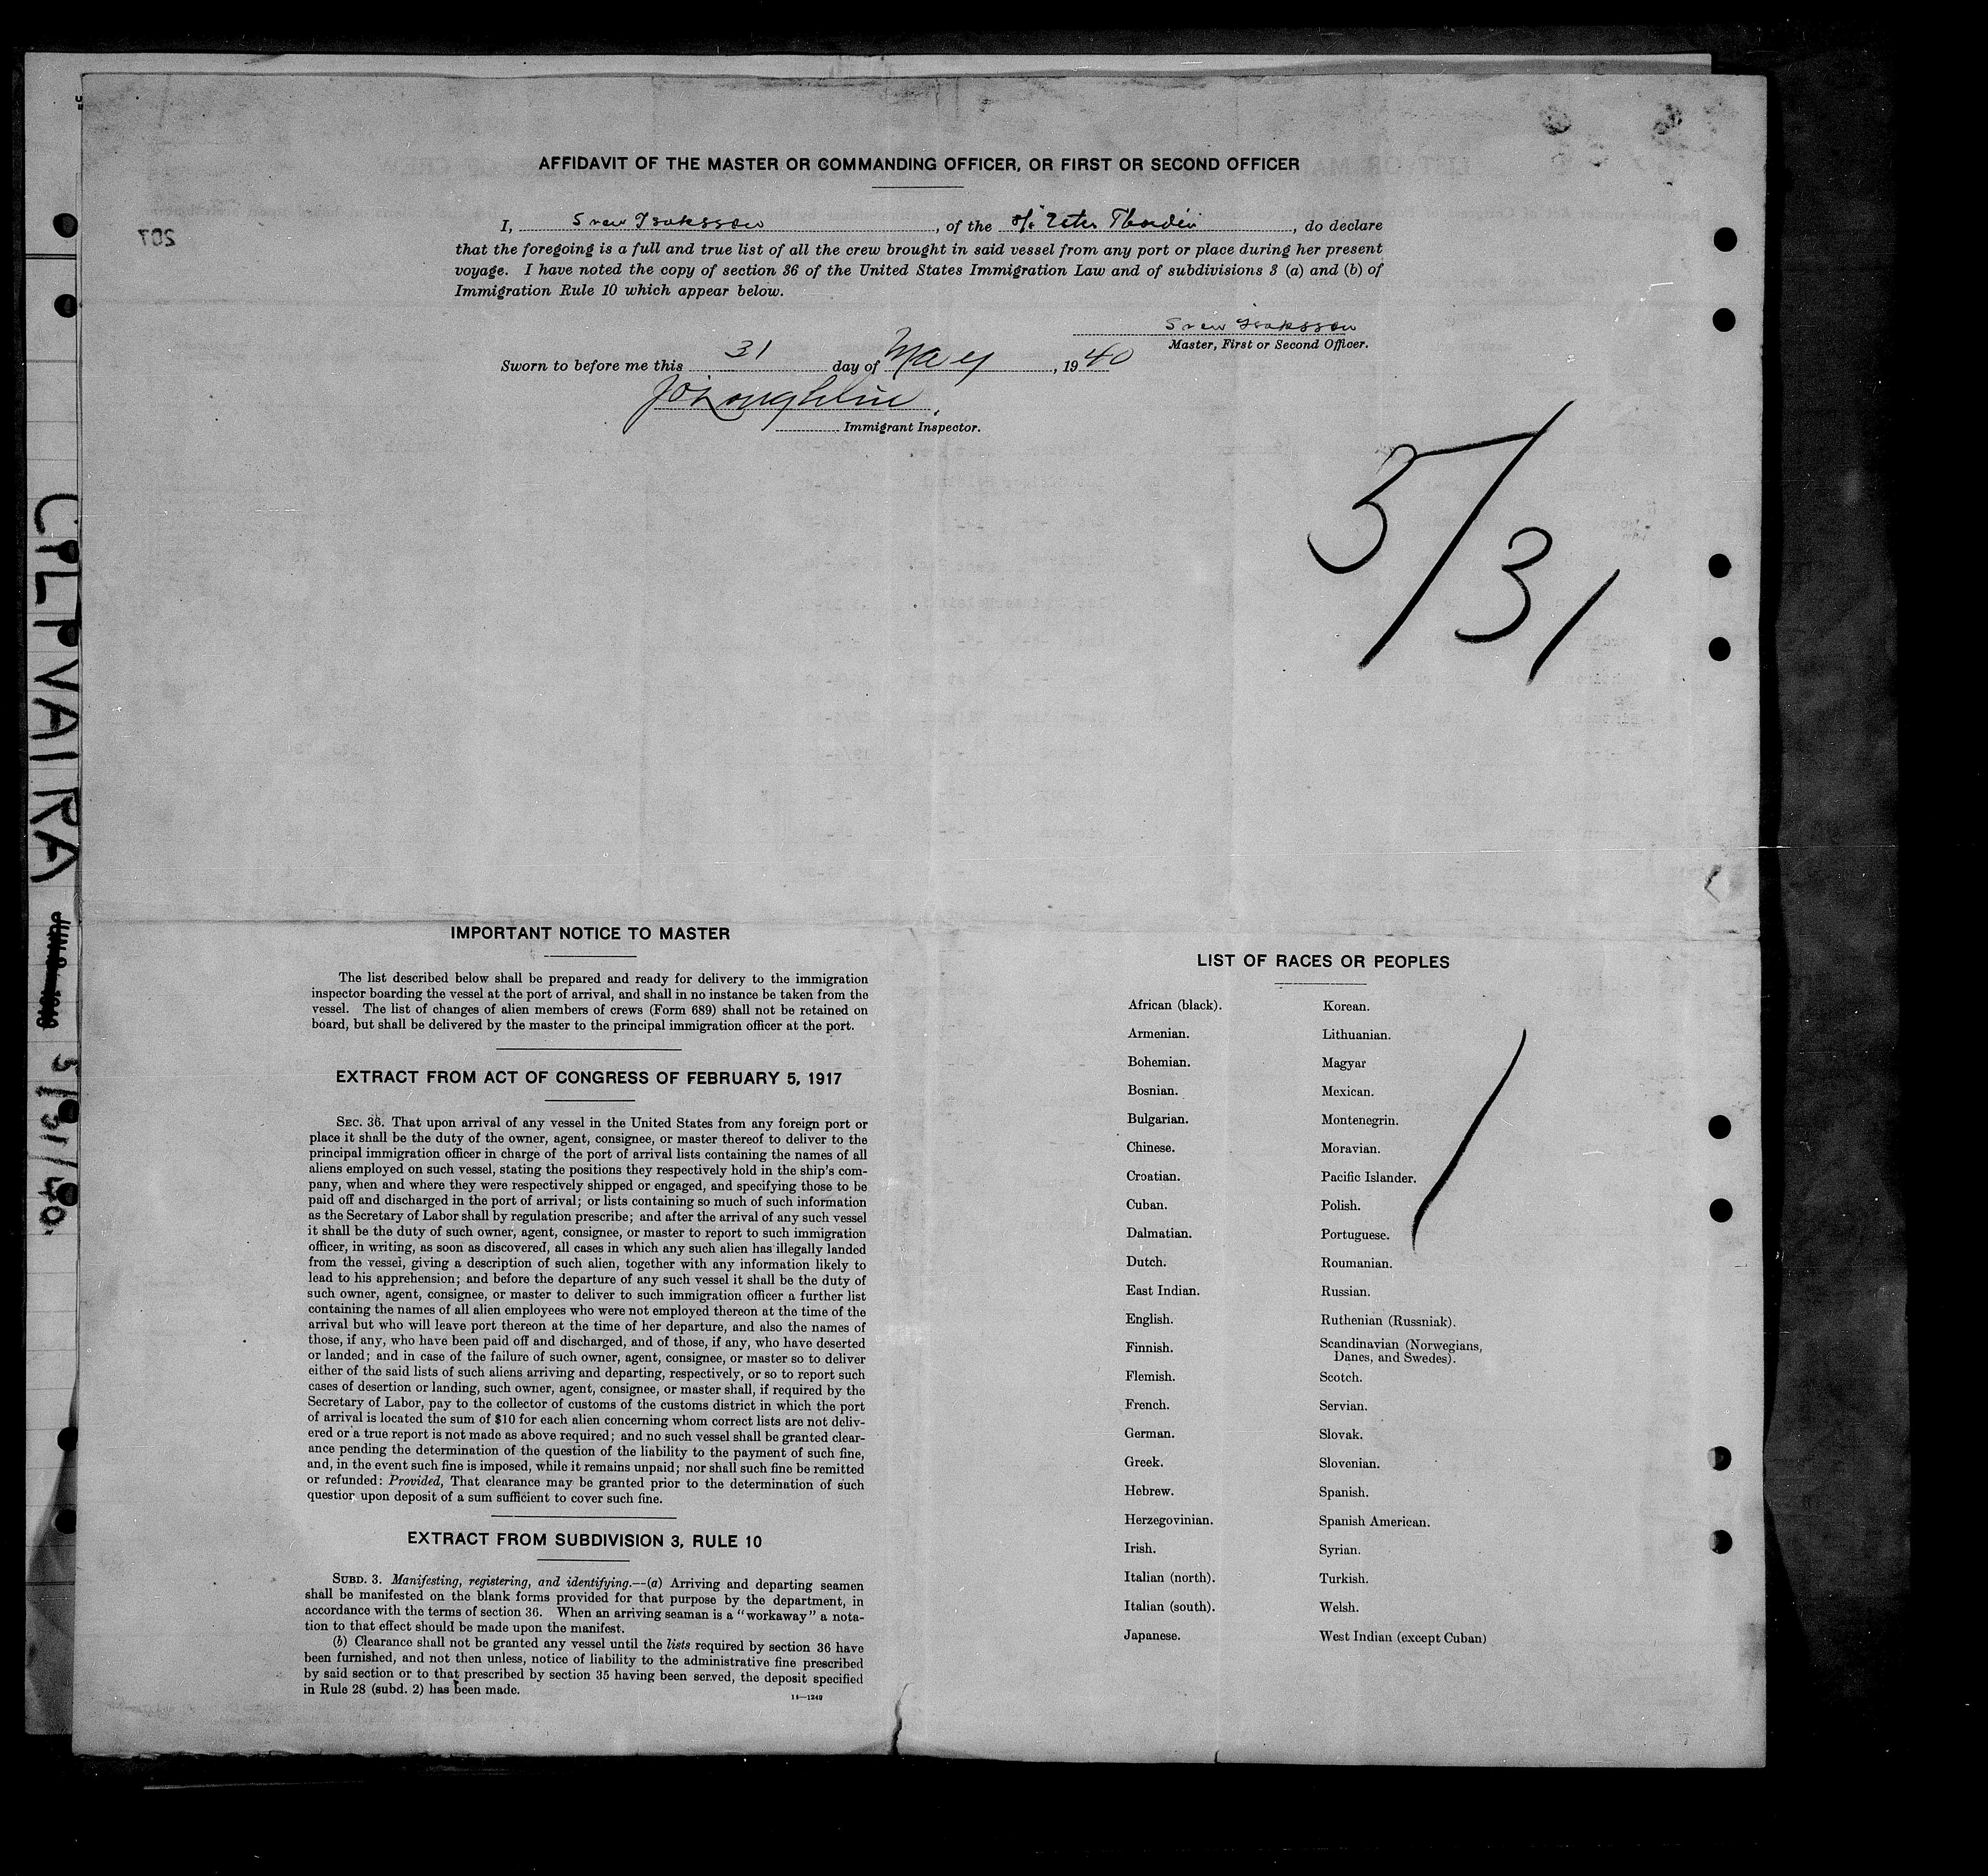 AFFIDAVIT OF THE MASTER OR COMMANDING OFFICER, OR FIRST OR SECOND OFFICER
I, Sven Isaksson, of the s/s Peter Thordén, do declare
that the foregoing is a full and true list of all the crew brought in said vessel from any port or place during her present
voyage. I have noted the copy of section 36 of the United States Immigration Law and of subdivisions 3 (a) and (b) of
Immigration Rule 10 which appear below.
Sven Isaksson
Master, First or Second Officer.
Sworn to before me this 31 day of May, 1940
JO'Loughlin
Immigrant Inspector.
207
5/31
CPL PVAIRA
5/31/40.
IMPORTANT NOTICE TO MASTER
The list described below shall be prepared and ready for delivery to the immigration
inspector boarding the vessel at the port of arrival, and shall in no instance be taken from the
vessel. The list of changes of alien members of crews (Form 689) shall not be retained on
board, but shall be delivered by the master to the principal immigration officer at the port.
EXTRACT FROM ACT OF CONGRESS OF FEBRUARY 5, 1917
SEC. 36. That upon arrival of any vessel in the United States from any foreign port or
place it shall be the duty of the owner, agent, consignee, or master thereof to deliver to the
principal immigration officer in charge of the port of arrival lists containing the names of all
aliens employed on such vessel, stating the positions they respectively hold in the ship's com-
pany, when and where they were respectively shipped or engaged, and specifying those to be
paid off and discharged in the port of arrival; or lists containing so much of such information
as the Secretary of Labor shall by regulation prescribe; and after the arrival of any such vessel
it shall be the duty of such owner, agent, consignee, or master to report to such immigration
officer, in writing, as soon as discovered, all cases in which any such alien has illegally landed
from the vessel, giving a description of such alien, together with any information likely to
lead to his apprehension; and before the departure of any such vessel it shall be the duty of
such owner, agent, consignee, or master to deliver to such immigration officer a further list
containing the names of all alien employees who were not employed thereon at the time of the
arrival but who will leave port thereon at the time of her departure, and also the names of
those, if any, who have been paid off and discharged, and of those, if any, who have deserted
or landed; and in case of the failure of such owner, agent, consignee, or master so to deliver
either of the said lists of such aliens arriving and departing, respectively, or so to report such
cases of desertion or landing, such owner, agent, consignee, or master shall, if required by the
Secretary of Labor, pay to the collector of customs of the customs district in which the port
of arrival is located the sum of $10 for each alien concerning whom correct lists are not deliv-
ered or a true report is not made as above required; and no such vessel shall be granted clear-
ance pending the determination of the question of the liability to the payment of such fine,
and, in the event such fine is imposed, while it remains unpaid; nor shall such fine be remitted
or refunded: Provided, That clearance may be granted prior to the determination of such
question upon deposit of a sum sufficient to cover such fine.
EXTRACT FROM SUBDIVISION 3, RULE 10
SUBD. 3. Manifesting, registering, and identifying.—(a) Arriving and departing seamen
shall be manifested on the blank forms provided for that purpose by the department, in
accordance with the terms of section 36. When an arriving seaman is a "workaway" a nota-
tion to that effect should be made upon the manifest.
(b) Clearance shall not be granted any vessel until the lists required by section 36 have
been furnished, and not then unless, notice of liability to the administrative fine prescribed
by said section or to that prescribed by section 35 having been served, the deposit specified
in Rule 28 (subd. 2) has been made.
14—1240
LIST OF RACES OR PEOPLES
African (black).
Armenian.
Bohemian.
Bosnian.
Bulgarian.
Chinese.
Croatian.
Cuban.
Dalmatian.
Dutch.
East Indian.
English.
Finnish.
Flemish.
French.
German.
Greek.
Hebrew.
Herzegovinian.
Irish.
Italian (north).
Italian (south).
Japanese.
Korean.
Lithuanian.
Magyar
Mexican.
Montenegrin.
Moravian.
Pacific Islander.
Polish.
Portuguese.
Roumanian.
Russian.
Ruthenian (Russniak).
Scandinavian (Norwegians,
Danes, and Swedes).
Scotch.
Servian.
Slovak.
Slovenian.
Spanish.
Spanish American.
Syrian.
Turkish.
Welsh.
West Indian (except Cuban)